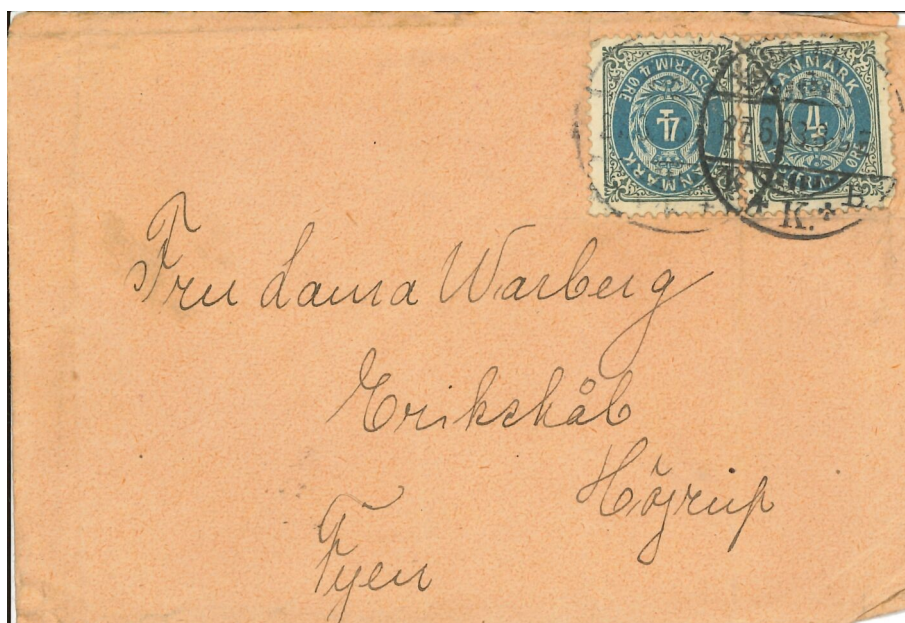 DANMARK
POSTFRIM. 4 ØRE
4
DANMARK
4
27.6.93
K.
B.
Fru Laura Warberg
Erikshåb
Højrup
Fyen